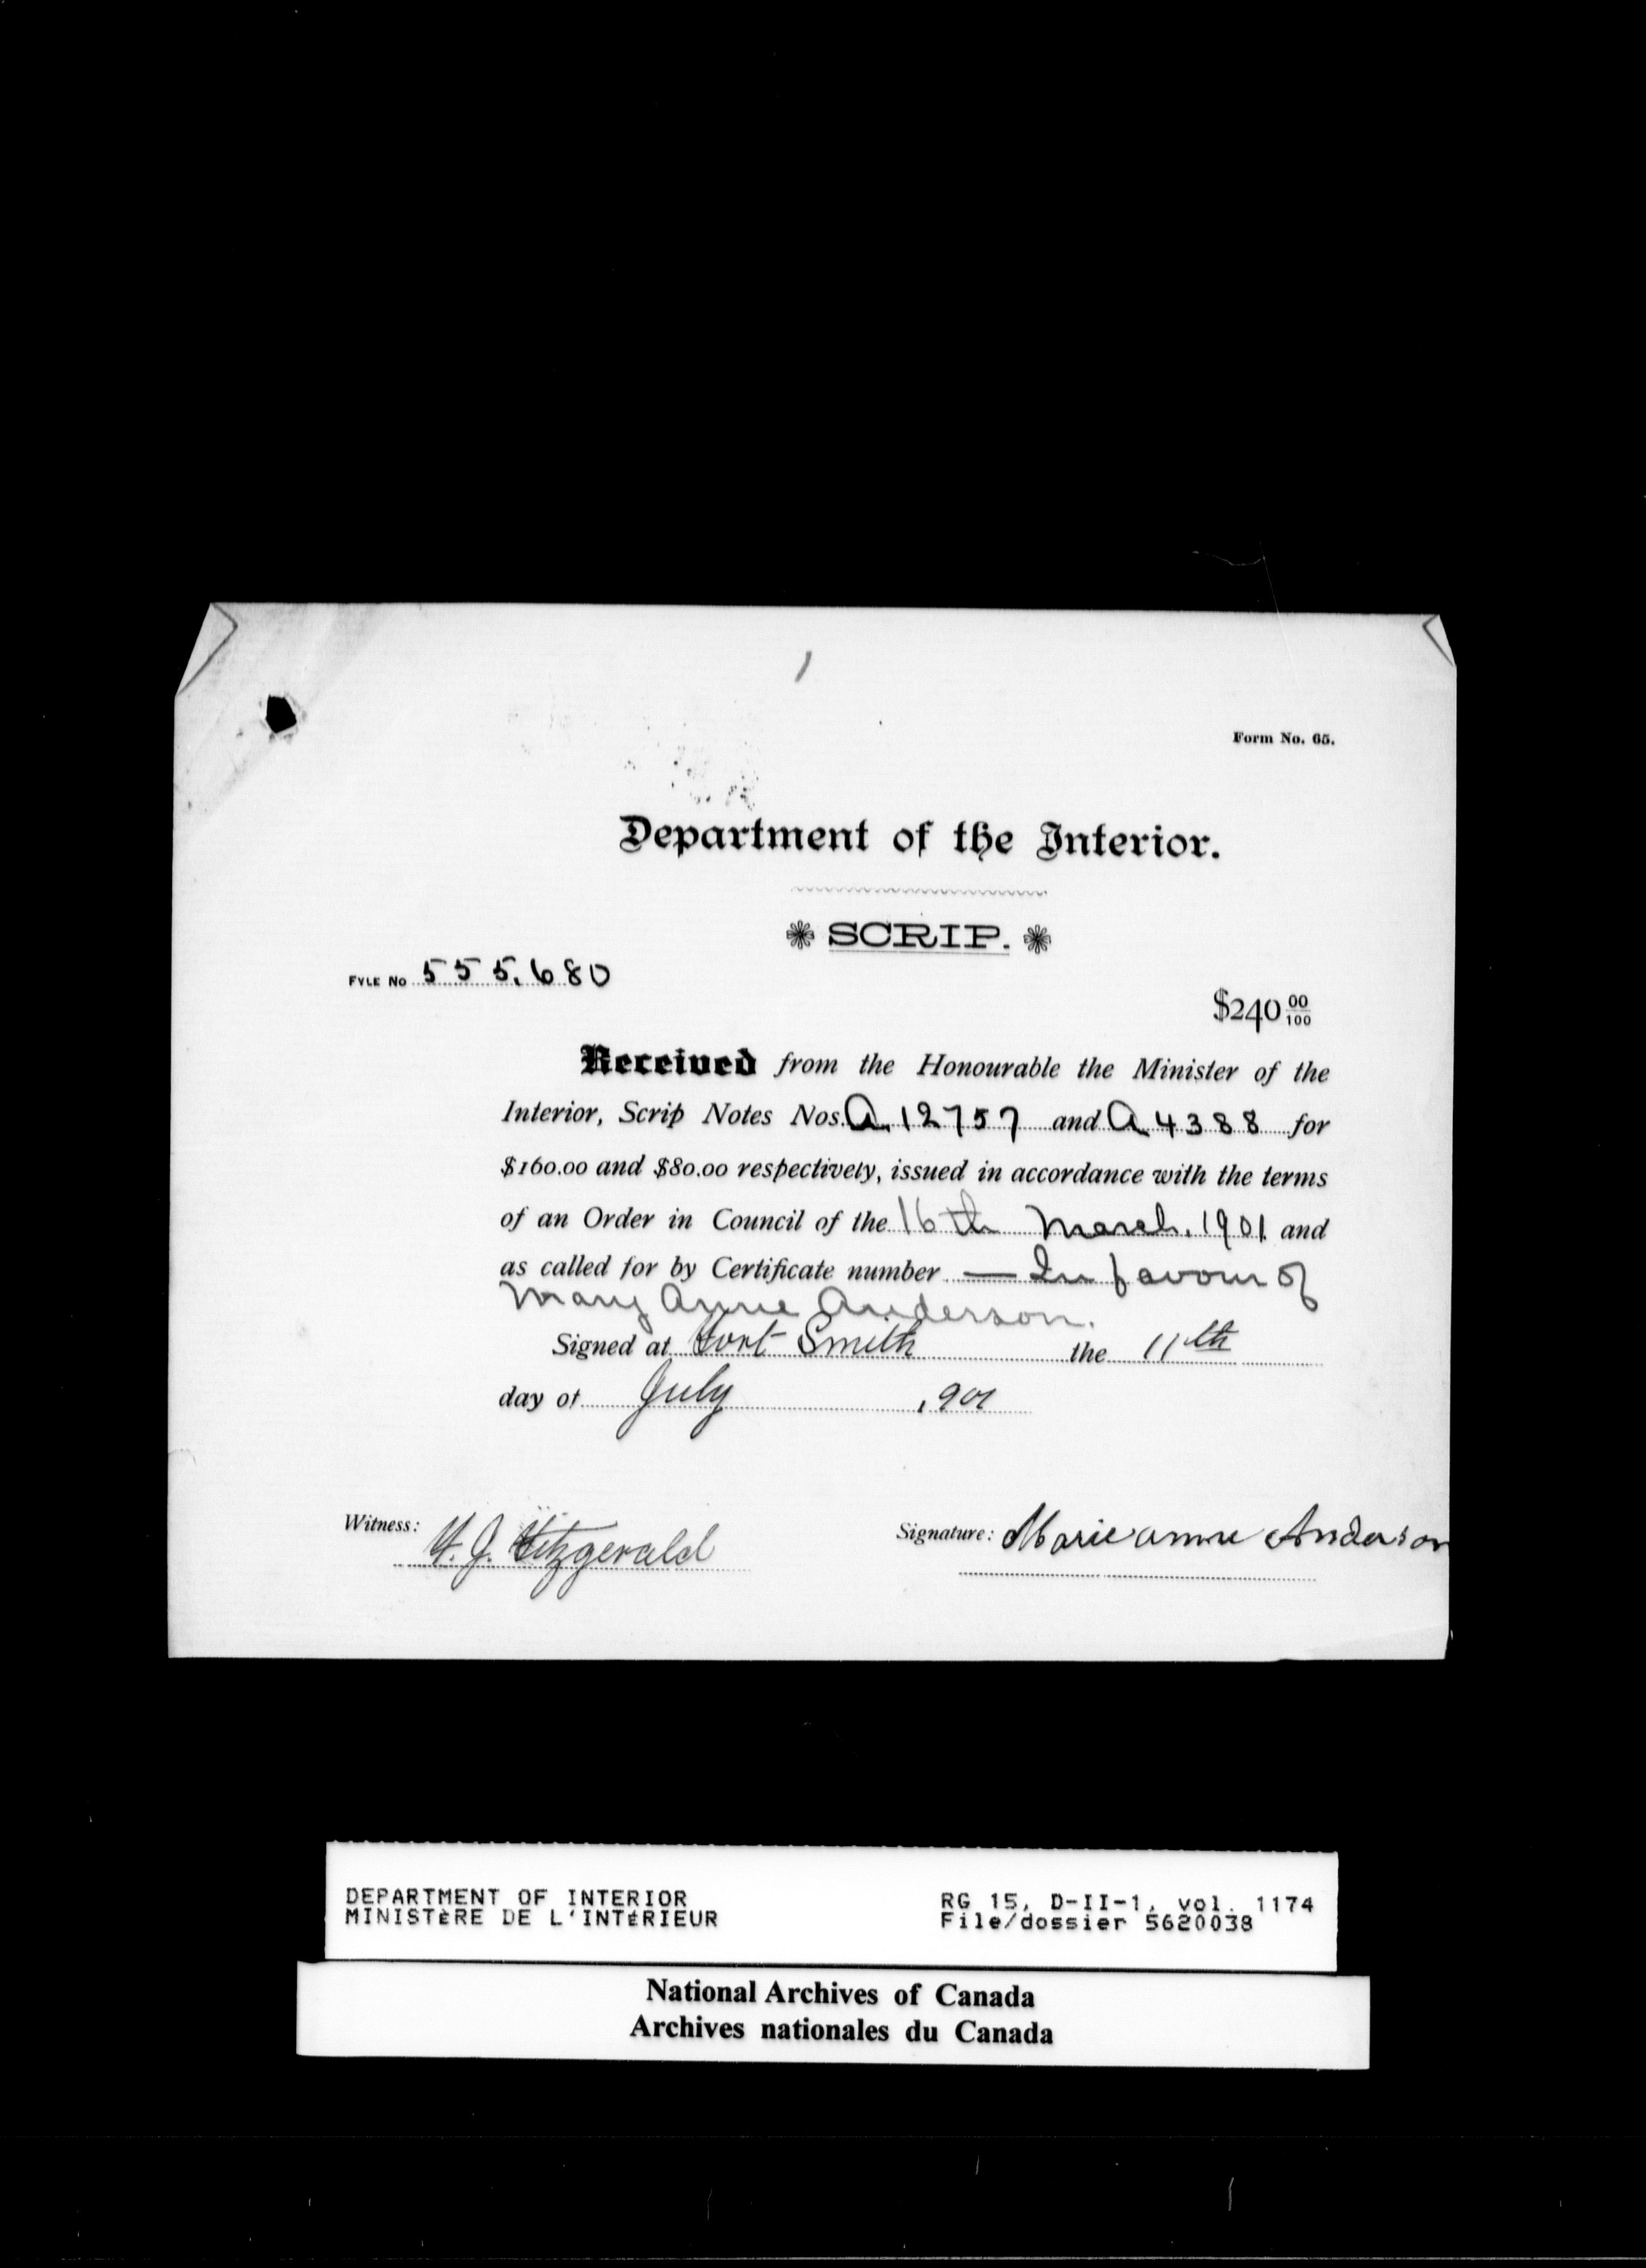 /
Form No. 65.
Department of the Interior.
SCRIP.
FYLE No 555,680
$240 00/100
Received from the Honourable the Minister of the
Interior, Scrip Notes Nos. A.12757 and A 4388 for
$160.00 and $80.00 respectively, issued in accordance with the terms
of an Order in Council of the 16th March, 1901 and
as called for by Certificate number — In favour of
Mary Anne Anderson.
Signed at Fort Smith the 11th
day of July 1901
Witness: Fitzgerald
Signature: Marie anne Anderson
DEPARTMENT OF INTERIOR RG 15, D-II-1, vol. 1174
MINISTÈRE DE L'INTÉRIEUR File/dossier 5620038
National Archives of Canada
Archives nationales du Canada